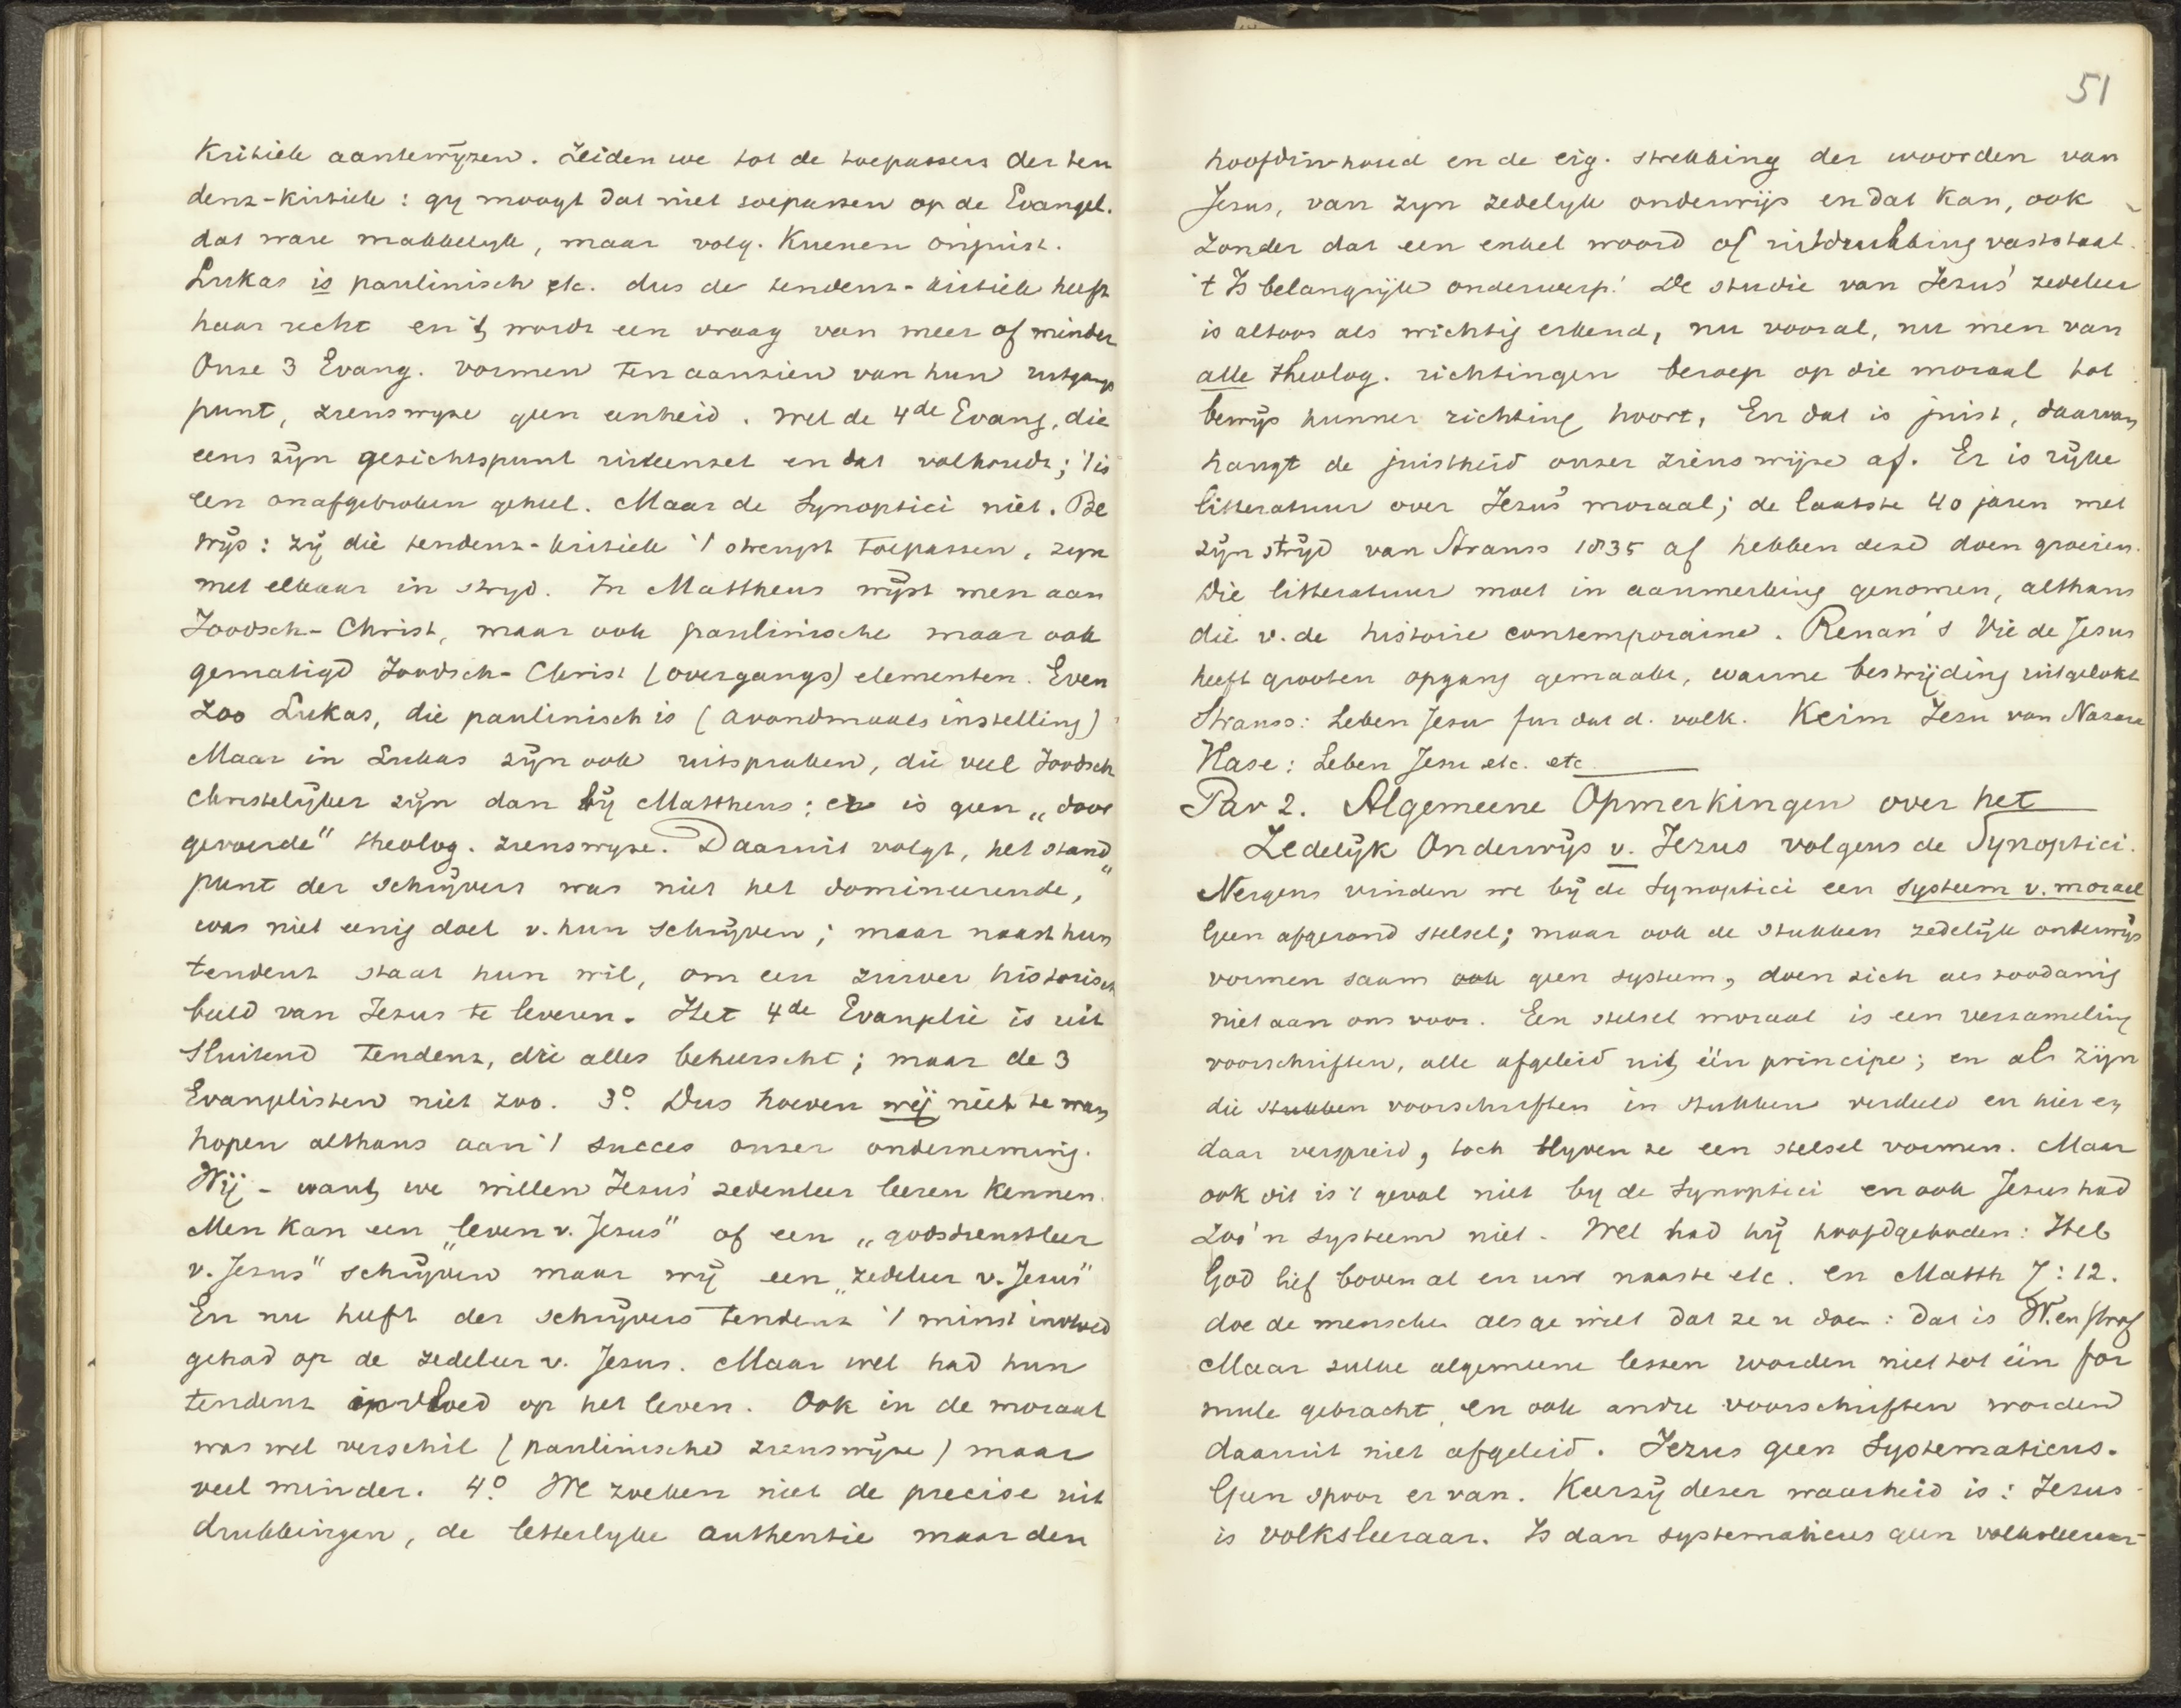 51
kritiek aantewijzen. Zeiden we tot de toepassers der ten
denz-kritiek: gij moogt dat niet toepassen op de Evangel.
dat ware makkelijk, maar volg. Kuenen onjuist.
Lukas is paulinisch etc. dus de tendenz-kritiek heeft
haar recht en 't wordt een vraag van meer of minder
Onze 3 Evang. vormen ten aanzien van hun uitgangs
punt, zienswijze geen eenheid. Wel de 4de Evang, die
eens zijn gezichtspunt uiteenzet en dat volhoudt; 't is
een onafgebroken geheel. Maar de Synoptici niet. Be
wijs: zij die tendenz-kritiek 't strengst toepassen, zijn
met elkaar in strijd. In Mattheus wijst men aan
Joodsch-Christ, maar ook paulinische maar ook
gematigd Joodsch-Christ (overgangs) elementen. Even
zoo Lukas, die paulinisch is (avondmaals instelling)
Maar in Lukas zijn ook uitspraken, die veel Joodsch
Christelijker zijn dan bij Mattheus; er is geen „door
gevoerde" theolog. zienswijze. Daaruit volgt, het stand
punt der schrijvers was niet het domineerende,
was niet eenig doel v. hun schrijven; maar naast hun
tendenz staat hun wil, om een zuiver historisch
beeld van Jezus te leveren. Het 4de Evanglie is uit
sluitend tendenz, die alles beheerscht; maar de 3
Evanglisten niet zoo. 3o. Dus hoeven wij niet te wan
hopen althans aan 't succes onzer onderneming.
Wij - want we willen Jezus' zedenleer leeren kennen.
Men kan een „leven v. Jesus" of een „godsdienstleer
v. Jesus" schrijven maar wij een „zedeleer v. Jesus"
En nu heeft der schrijvers tendenz 't minst invloed
gehad op de zedeleer v. Jesus. Maar wel had hun
tendenz invloed op het leven. Ook in de moraal
was wel verschil (paulinische zienswijze) maar
veel minder. 4o. We zoeken niet de precise uit
drukkingen, de letterlijke authentie maar den
hoofdinhoud en de eig. strekking der woorden van
Jesus, van zijn zedelijk onderwijs en dat kan, ook
zonder dat een enkel woord of uitdrukking vaststaat.
't Is belangrijk onderwerp! De studie van Jezus' zedeleer
is altoos als wichtig erkend, nu vooral, nu men van
alle theolog. richtingen beroep op die moraal tot
bewijs hunner richting hoort, En dat is juist, daarvan
hangt de juistheid onzer zienswijze af. Er is rijke
litteratuur over Jezus' moraal; de laatste 40 jaren met
zijn strijd van Strauss 1835 af hebben deze doen groeien.
Die litteratuur moet in aanmerking genomen, althans
die v. de histoire contemporaine. Renan's Vie de Jesus
heeft grooten opgang gemaakt, warme bestrijding uitgelokt
Strauss: Leben Jesu fur dat d. volk. Keim Jesu van Nazara
Hase: Leben Jesu etc. etc
Par 2. Algemeene Opmerkingen over het
Zedelijk Onderwijs v. Jezus volgens de Synoptici.
Nergens vinden we bij de Synoptici een systeem v. moraal
Geen afgerond stelsel; maar ook de stukken zedelijk onderwijs
vormen saam ook geen systeem, doen zich als zoodanig
niet aan ons voor. Een stelsel moraal is een verzameling
voorschriften, alle afgeleid uit één principe; en als zijn
die stukken voorschriften in stukken verdeeld en hier en
daar verspreid, toch blijven ze een stelsel vormen. Maar
ook dit is 't geval niet bij de Synoptici en ook Jesus had
zoo'n systeem niet. Wel had hij hoofdgeboden: Heb
God lief boven al en uw naaste etc. en Matth 7:12.
doe de menschen als ge wilt dat ze u doen: dat is W. en prof
Maar zulke algemeene lessen worden niet tot één for
mule gebracht, en ook andre voorschriften worden
daaruit niet afgeleid. Jezus geen Systematicus.
Geen spoor er van. Keerzij dezer waarheid is: Jesus
is volksleeraar. Is dan systematicus geen volksleeraar